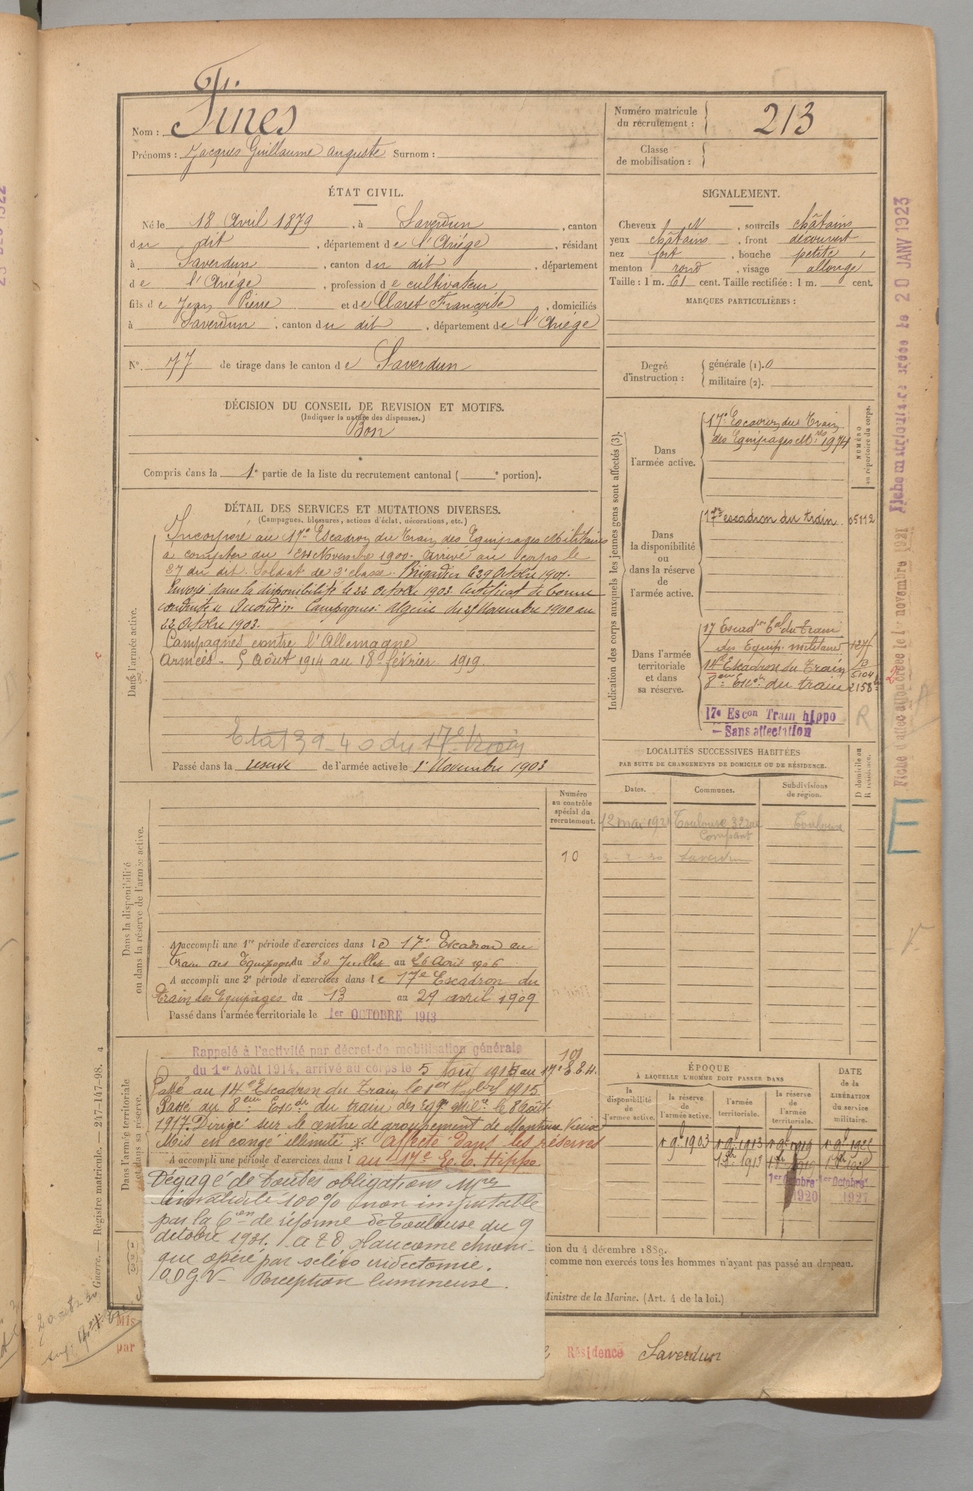 Nom : Fines
Prénoms : Jacques Guillaume Auguste Surnom :
Numéro matricule du recrutement : 213
Classe de mobilisation :
ÉTAT CIVIL.
Né le 18 Avril 1879, à Saverdun, canton
du dit, département de l'Ariége, résidant
à Saverdun, canton du dit, département
de l'Ariége, profession de cultivateur
fils de Jean Pierre et de Claret Françoise, domiciliés
à Saverdun, canton du dit, département de l'Ariége
N° 77 de tirage dans le canton de Saverdun
SIGNALEMENT.
Cheveux N, sourcils châtains
yeux châtains, front découvert
nez fort, bouche petite,
menton rond, visage allongé
Taille : 1 m. 61 cent. Taille rectifiée : 1 m. cent.
MARQUES PARTICULIÈRES :
Degré d'instruction : générale (1). 0
militaire (2).
DÉCISION DU CONSEIL DE REVISION ET MOTIFS.
(Indiquer la nature des dispenses.)
Bon
Compris dans la 1e partie de la liste du recrutement cantonal ( e portion).
DÉTAIL DES SERVICES ET MUTATIONS DIVERSES.
(Campagnes, blessures, actions d'éclat, décorations, etc.)
Dans l'armée active.
Incorporé au 17e Escadron du Train des Equipages Militaires
à compter du Novembre 1900. Arrivé au corps le
27 du dit. Soldat de 2e classe. Brigadier le 29 Octobre 1901.
Envoyé dans la disponibilité le 22 octobre 1903. Certificat de bonne
conduite Accordé. Campagnes: Algérie du 27 Novembre 1900 au
22 Octobre 1903.
Campagnes contre l'Allemagne
Armées - 5 Août 1914 au 18 février 1919.
Etat 39-40 du 17e Train
Passé dans la réserve de l'armée active le 1er Novembre 1903
Indication des corps auxquels les jeunes gens sont affectés (3).
NUMÉRO au répertoire du corps.
Dans l'armée active.
17e Escadron du Train
des Equipages Mres 1974
Dans la disponibilité ou dans la réserve de l'armée active.
17e escadron du train. 05112
Dans l'armée territoriale et dans sa réserve.
17 Escadon Tal du Train
des Equip. militaires
Escadron du Train
8ème Escon du train 2158
17e Escon Train hippo
— Sans affectation
LOCALITÉS SUCCESSIVES HABITÉES
PAR SUITE DE CHANGEMENTS DE DOMICILE OU DE RÉSIDENCE.
Dates. Communes. Subdivisions de région.
D domicile ou R résidence.
12 mai 192 Toulouse Toulouse
Saverdun
Dans la disponibilité ou dans la réserve de l'armée active.
Numéro au contrôle spécial du recrutement.
10
A accompli une 1re période d'exercices dans le 17e Escadron du
Train des Equipages du 30 Juillet au 26 Août 1906
A accompli une 2e période d'exercices dans le 17e Escadron du
Train des Equipages du 13 au 29 avril 1909
Passé dans l'armée territoriale le 1er OCTOBRE 1913
Dans l'armée territoriale et dans sa réserve.
Rappelé à l'activité par décret de mobilisation générale
du 1er Août 1914, arrivé au corps le 5 Août
Passé au 14e Escadron du Train le 1er 1915
Passé au 8ème Escon du train des éqes milres le 8 Août
1917. Dirigé sur le centre de groupement de
Mis en congé illimité affecté dans les réserves
A accompli une période d'exercices dans l au 17e E. T. Hippo
Dégagé de toutes obligations Mres
invalidité 100% non imputable
par la Con de réforme de Toulouse du 9
octobre 1931. glaucome chroni-
que opéré par scléro iridectomie.
O D G V - Perception lumineuse.
ÉPOQUE
À LAQUELLE L'HOMME DOIT PASSER DANS
la disponibilité de l'armée active.
la réserve de l'armée active.
l'armée territoriale.
la réserve de l'armée territoriale.
DATE de la LIBÉRATION du service militaire.
1er 9bre 1903
1er Octobre 1920
1er Octobre 1927
tion du 4 décembre 1889.
comme non exercés tous les hommes n'ayant pas passé au drapeau.
Ministre de la Marine. (Art. 4 de la loi.)
Résidence Saverdun
Guerre. — Registre matricule. — 247-147-98.
Fiche matriculaire créée le 20 JANV 1923
Fiche d'affectation créée le 1er novembre 1921
E
A
R
Mis
par